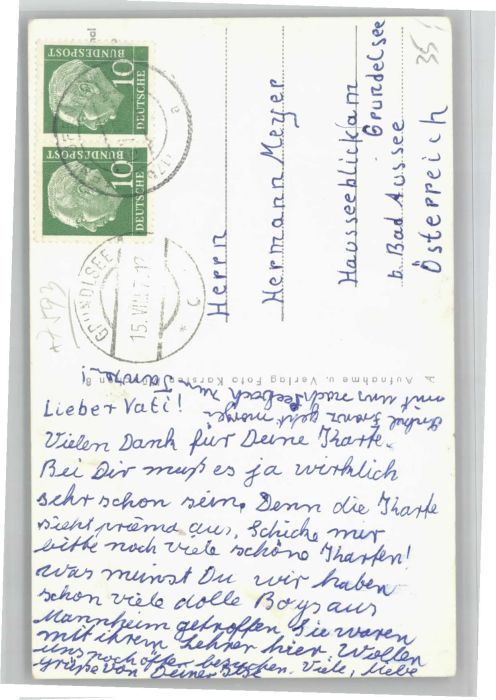 DEUTSCHE
BUNDESPOST
10
DEUTSCHE
BUNDESPOST
10
GRUNDLSEE
15.VIII.57.12
* c
35
+7593
Herrn
Hermann Meyer
Hausseeblick am
Grundelsee
b. Bad Aussee
Österreich
Aufnahme u. Verlag Foto Karsten
Lieber Vati!
Vielen Dank für Deine Kharte.
Bei Dir muß es ja wirklich
sehr schon sein. Denn die Kharte
sieht präma aus. Schicke mir
bitte noch viele schöne Kharten!
was meinst Du wir haben
schon viele dolle Boys aus
Mannheim getroffen. Sie waren
mit ihrem Lehrer hier. Wollen
uns noch öfter besuchen. Viele, liebe
Grüße von Deiner
geht morgen
mit uns nach Seebach zum Tanzen!